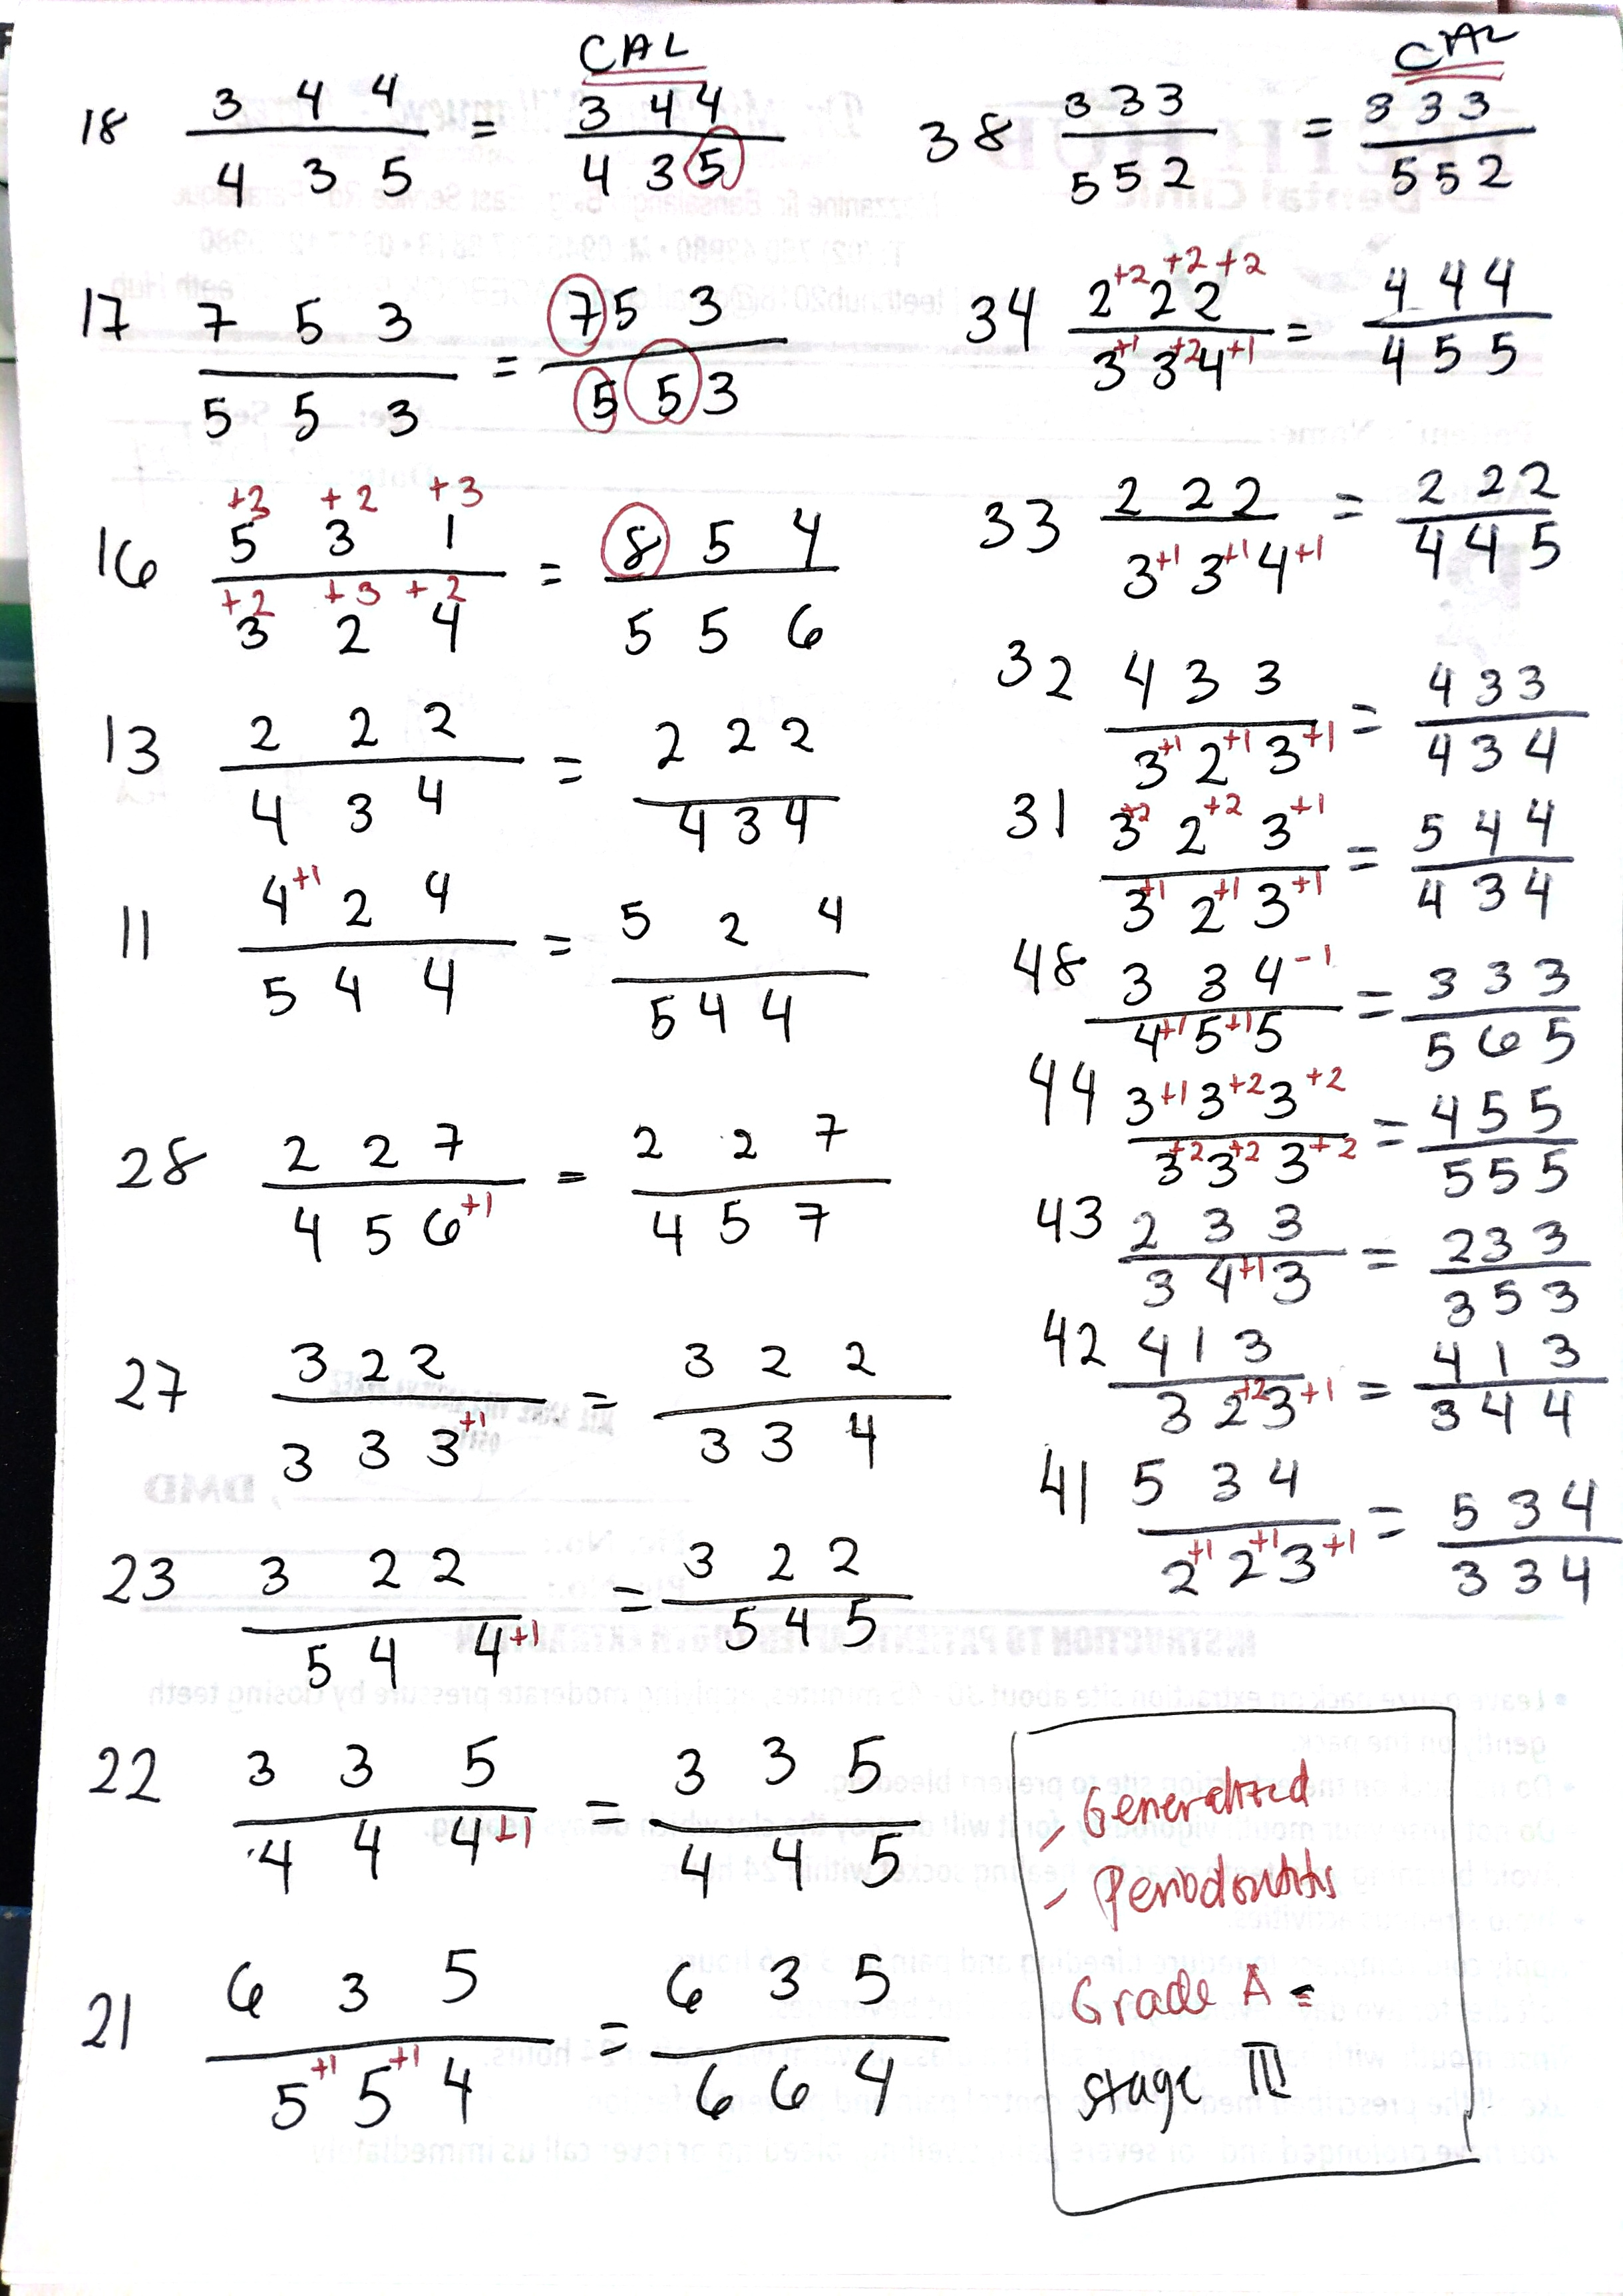 CAL
18 3 4 4 = 3 4 4
4 3 5 4 3 5
17 7 5 3 = 7 5 3
5 5 3 5 5 3
+3 +2 +3
16 5 3 1 = 8 5 4
+2 +3 +2
3 2 4 5 5 6
13 2 2 2 = 2 2 2
4 3 4 4 3 4
11 4+1 2 4 = 5 2 4
5 4 4 5 4 4
28 2 2 7 = 2 2 7
4 5 6+1 4 5 7
27 3 2 2 = 3 2 2
3 3 3+1 3 3 4
23 3 2 2 = 3 2 2
5 4 4+1 5 4 5
22 3 3 5 = 3 3 5
4 4 4+1 4 4 5
21 6 3 5 = 6 3 5
5+1 5+1 4 6 6 4
CAL
38 3 3 3 = 3 3 3
5 5 2 5 5 2
34 2+2 2+2 2+2 = 4 4 4
3+1 3+2 4+1 4 5 5
33 2 2 2 = 2 2 2
3+1 3+1 4+1 4 4 5
32 4 3 3 = 4 3 3
3+1 2+1 3+1 4 3 4
31 3+2 2+2 3+1 = 5 4 4
3+1 2+1 3+1 4 3 4
48 3 3 4-1 = 3 3 3
4+1 5+1 5 5 6 5
44 3+1 3+2 3+2 = 4 5 5
3+2 3+2 3+2 5 5 5
43 2 3 3 = 2 3 3
3 4+1 3 3 5 3
42 4 1 3 = 4 1 3
3 2+2 3+1 3 4 4
41 5 3 4 = 5 3 4
2+1 2+1 3+1 3 3 4
- Generalized
- Periodontitis
Grade A =
stage III